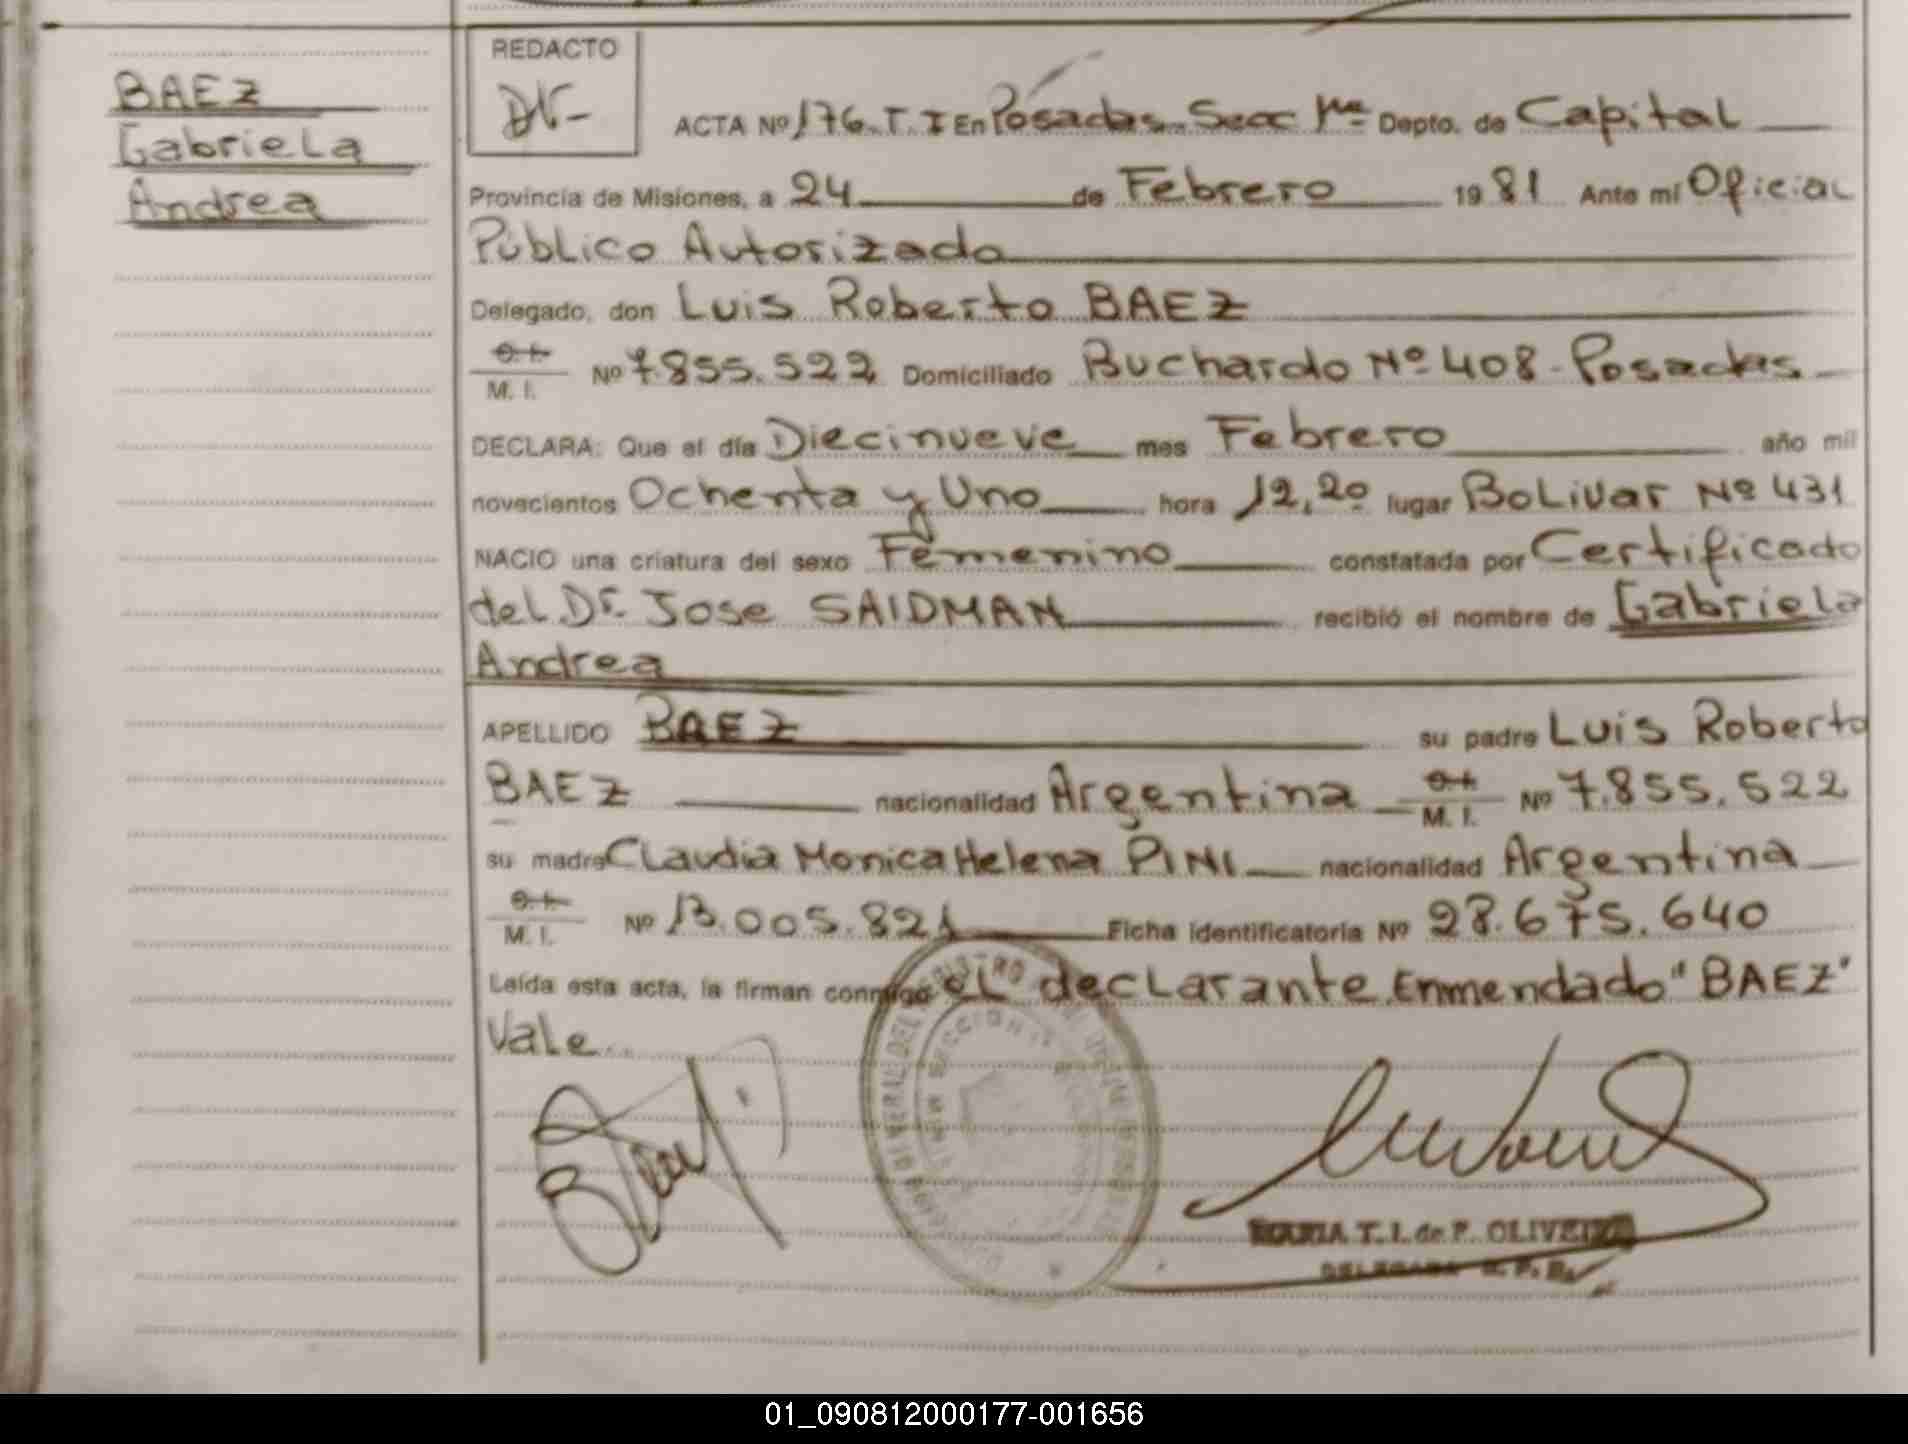 BAEZ
Gabriela
Andrea
REDACTO
ACTA Nº 176. T. I En Posadas Secc 1ra Depto. de Capital
Provincia de Misiones, a 24 de Febrero 1981 Ante mí Oficial
Público Autorizado
Delegado, don Luis Roberto BAEZ
M. I. Nº 7.855.522 Domiciliado Buchardo Nº 408 - Posadas
DECLARA: Que el día Diecinueve mes Febrero año mil
novecientos Ochenta y Uno hora 12,20 lugar BoLivar Nº 431
NACIO una criatura del sexo Femenino constatada por Certificado
del Dr. Jose SAIDMAN recibió el nombre de Gabriela
Andrea
APELLIDO BAEZ su padre Luis Roberto
BAEZ nacionalidad Argentina M. I. Nº 7.855.522
su madre Claudia Monica Helena PINI nacionalidad Argentina
M. I. Nº 13.005.821 Ficha identificatoria Nº 28.675.640
Leída esta acta, la firman conmigo el declarante. Enmendado "BAEZ"
Vale.
MARIA T. I. de P. OLIVEIRA
DELEGADA
01_090812000177-001656